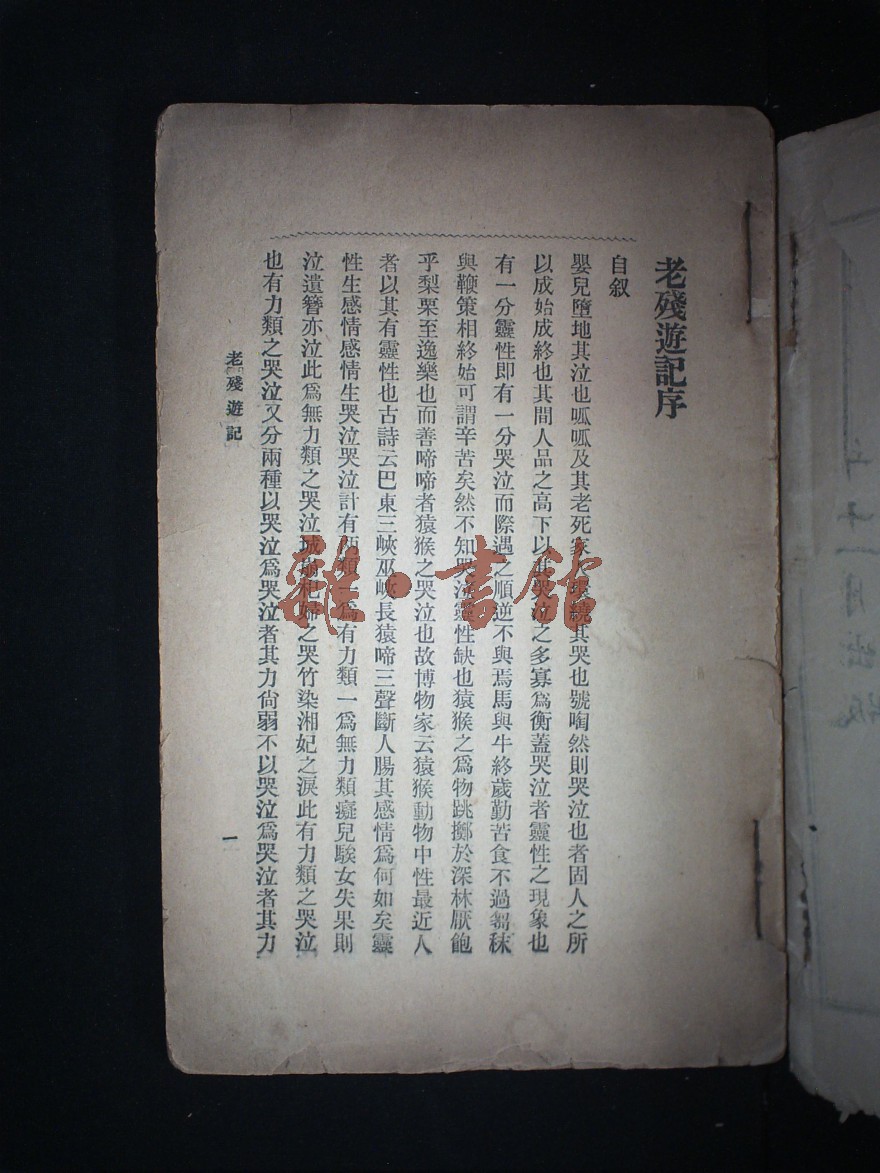 老殘遊記序
自叙
嬰兒墮地其泣也呱呱及其老死家人環繞其哭也號啕然則哭泣也者固人之所
以成始成終也其間人品之高下以其哭泣之多寡爲衡蓋哭泣者靈性之現象也
有一分靈性即有一分哭泣而際遇之順逆不與焉馬與牛終歲勤苦食不過芻秣
與鞭策相終始可謂辛苦矣然不知哭泣靈性缺也猿猴之爲物跳擲於深林厭飽
乎梨栗至逸樂也而善啼啼者猿猴之哭泣也故博物家云猿猴動物中性最近人
者以其有靈性也古詩云巴東三峽巫峽長猿啼三聲斷人腸其感情爲何如矣靈
性生感情感情生哭泣哭泣計有兩類一爲有力類一爲無力類癡兒騃女失果則
泣遺簪亦泣此爲無力類之哭泣城崩杞婦之哭竹染湘妃之淚此有力類之哭泣
也有力類之哭泣又分兩種以哭泣爲哭泣者其力尙弱不以哭泣爲哭泣者其力
老殘遊記
一
雜·書館